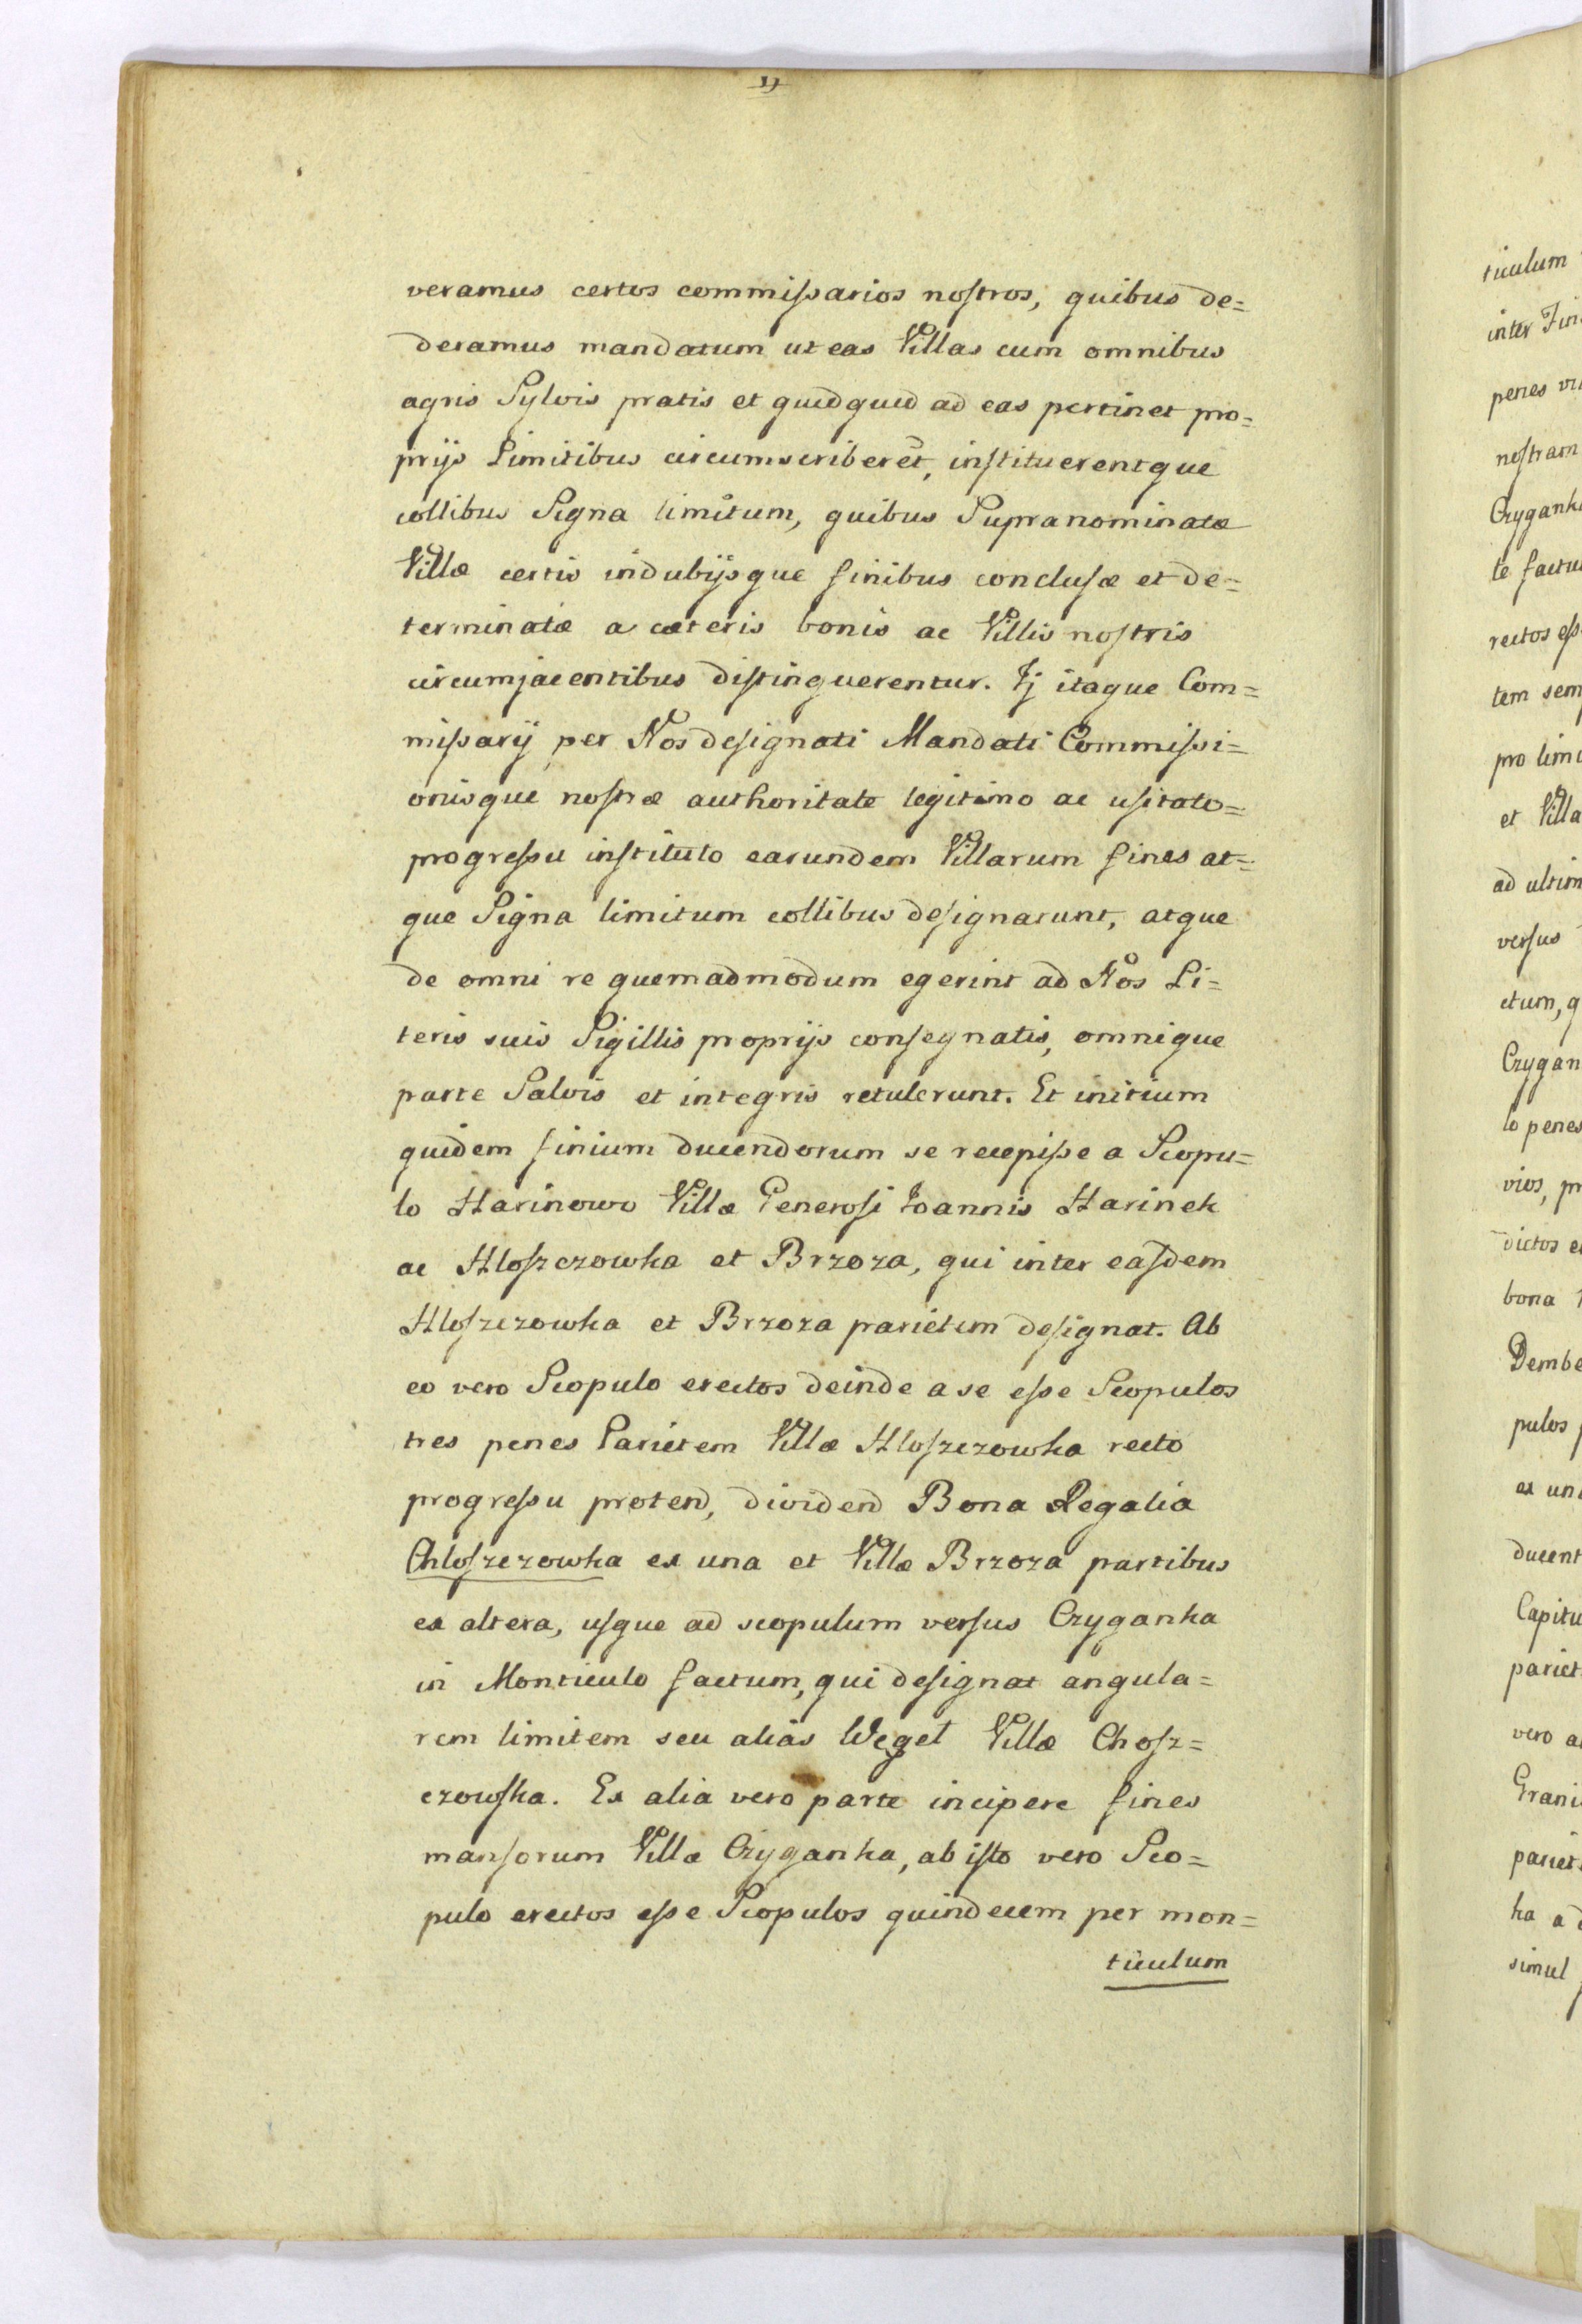 veramus certos commiſsarios noſtros, quibus de=
deramus mandatum ut eas Villas cum omnibus
agris Sylvis pratis et quidquid ad eas pertinet pro=
prijs Limitibus circumscriberēt, inſtituerentque
collibus Signa limitum, quibus Supranominatæ
Villæ certis indubijsque finibus concluſæ et de=
terminatæ a cæteris bonis ac Villis noſtris
circumjacentibus diſtinguerentur. Ij itaque Com=
miſsarij per Nos deſignati Mandati Commiſsi=
onisque noſtræ authoritate legitimo ac uſitato=
progreſsu inſtituto earundem Villarum fines at=
que Signa limitum collibus deſignarunt, atque
de omni re quemadmodum egerint ad Nos Li=
teris suis Sigillis proprijs conſegnatis, omnique
parte Salvis et integris retulerunt. Et initium
quidem finium ducendorum se recepiſse a Scopu=
lo Harinowo Villæ Generoſi Joannis Harinek
ac Hloſzczowka et Brzoza, qui inter eaſdem
Hloſzczowka et Brzoza parietem deſignat. Ab
eo vero Scopulo erectos deinde a se eſse Scopulos
tres penes Parietem Villæ Hloſzczowka recto
progreſsu protend, dividend Bona Regalia
Chloſzczowka ex una et Villæ Brzoza partibus
ex altera, uſque ad scopulum verſus Czyganka
in Monticulo factum, qui deſignat angula=
rem limitem seu alias Węgel Villæ Choſz=
czowſka. Ex alia vero parte incipere fines
manſorum Villæ Czyganka, ab iſto vero Sco=
pulo erectos eſse Scopulos quindecem per mon=
ticulum
ticulum
inter
penes
noſtram
le
rectos
tem
pro
et Villa
ad
verſus
ctum,
lo penes
vios,
dictos
bona
pulos
ex
vero
ka
simul